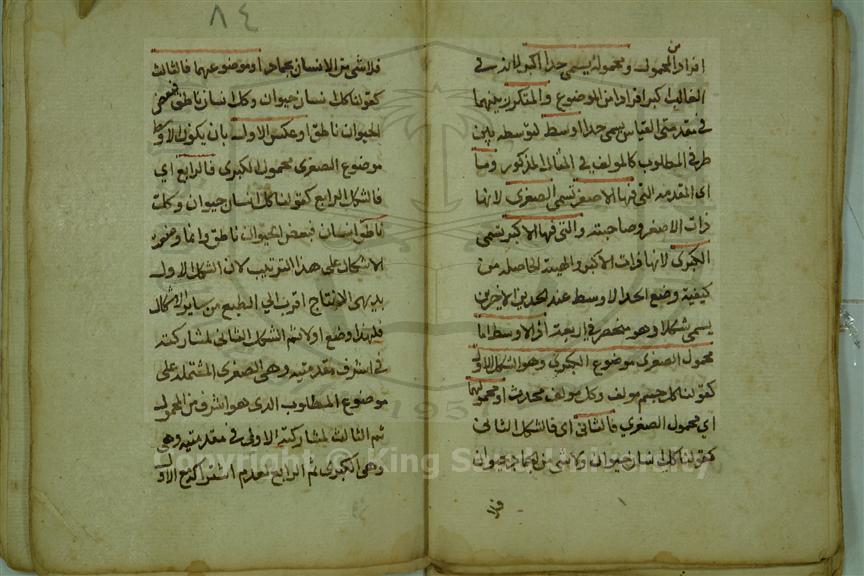 من
افراد المحمول ومحموله يسمى حدا اكبر لانه في
الغالب اكبر افرادا من الموضوع والمتكرر بينهما
في مقدمتي القياس يسمى حدا اوسط لتوسطه بين
طرفي المطلوب كالمولف في المثال المذكور وما
اي المقدمه التي فيها الاصغر تسمى الصغرى لانها
ذات الاصغر وصاحبته والتي فيها الاكبر تسمى
الكبرى لانها ذات الاكبر والهيئة الحاصله من
كيفية وضع الحد الاوسط عند الحدين الاخرين
يسمى شكلا وهو منحصر في اربعة اذ الاوسط اما
محمول الصغرى موضوع الكبرى وهو الشكل الاول
كقولنا كل جسم مولف وكل مولف محدث او محمولهما
اي محمول الصغرى فالثاني اي فالشكل الثاني
كقولنا كل انسان حيوان ولا شى من الجماد بحيوان
٨٤
فلا شى من الانسان بجماد او موضوعهما فالثالث
كقولنا كل انسان حيوان وكل انسان ناطق فبعض
الحيوان ناطق او عكس الاول بان يكون الاوسط
موضوع الصغرى محمول الكبرى فالرابع اي
فالشكل الرابع كقولنا كل انسان حيوان وكل
ناطق انسان فبعض الحيوان ناطق وانما وضعت
الاشكال على هذا الترتيب لان الشكل الاول
بديهى الانتاج اقرب الي الطبع من ساير الاشكال
فلهذا وضع اولا ثم الشكل الثانى لمشاركته
في اشرف مقدمتيه وهى الصغرى المشتمله على
موضوع المطلوب الذى هو اشرف من المحمول
ثم الثالث لمشاركته الاولى في مقدمتيه وهى
وهى الكبرى ثم الرابع لعدم اشتراكه مع الاول
Copyright © King Saud University
1957